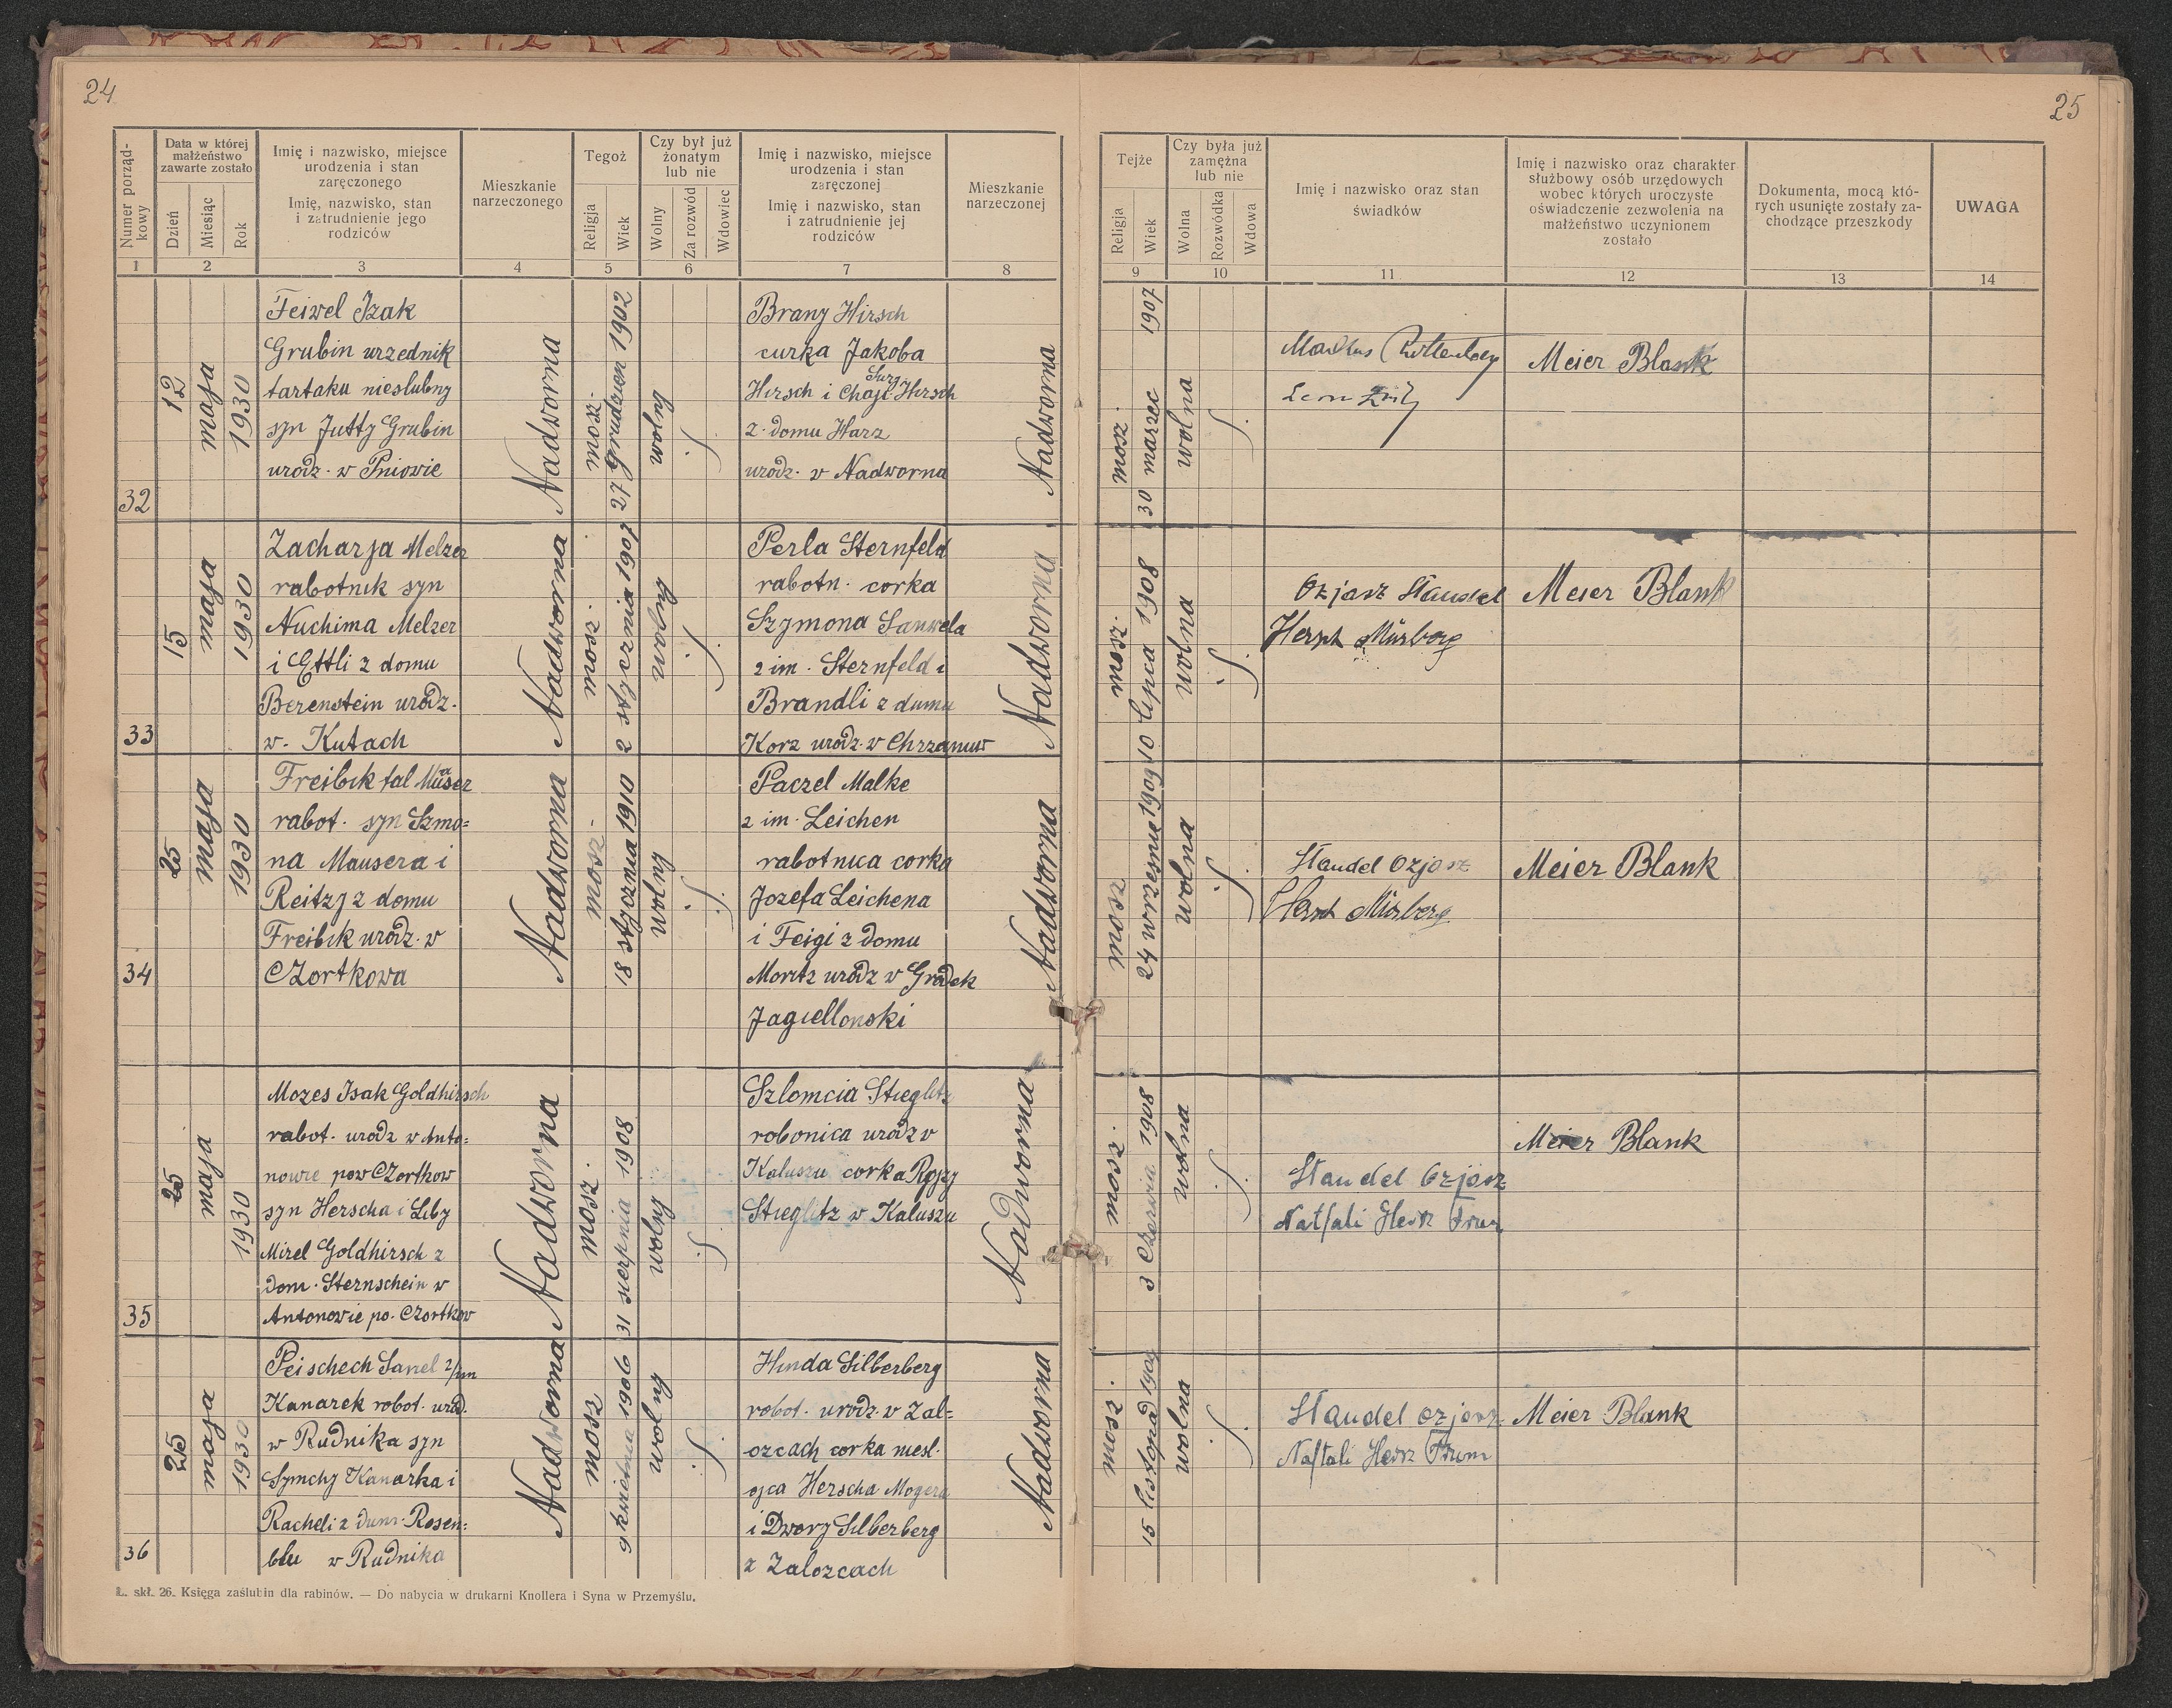 24
25
Numer porząd-
kowy
Data w której
małżeństwo
zawarte zostało
Dzień
Miesiąc
Rok
Imię i nazwisko, miejsce
urodzenia i stan
zaręczonego
Imię, nazwisko, stan
i zatrudnienie jego
rodziców
Mieszkanie
narzeczonego
Tegoż
Religja
Wiek
Czy był już
żonatym
lub nie
Wolny
Za rozwód
Wdowiec
Imię i nazwisko, miejsce
urodzenia i stan
zaręczonej
Imię i nazwisko, stan
i zatrudnienie jej
rodziców
Mieszkanie
narzeczonej
Tejże
Religja
Wiek
Czy była już
zamężna
lub nie
Wolna
Rozwódka
Wdowa
Imię i nazwisko oraz stan
świadków
Imię i nazwisko oraz charakter
służbowy osób urzędowych
wobec których uroczyste
oświadczenie zezwolenia na
małżeństwo uczynionem
zostało
Dokumenta, mocą któ-
rych usunięte zostały za-
chodzące przeszkody
UWAGA
1 2 3 4 5 6 7 8 9 10 11 12 13 14
32
12
maja
1930
Feiwel Izak
Grubin urzednik
tartaku nieslubny
syn Jutty Grubin
urodz. w Pniowie
Nadworna
mosz.
27 grudzien 1902
wolny
Brany Hirsch
curka Jakoba
Hirsch i Chaji Sury Hirsch
z domu Harz
urodz. w Nadworna
Nadworna
mosz.
30 marzec 1907
wolna
Markus
Meier Blank
33
15
maja
1930
Zacharja Melzer
rabotnik syn
Nuchima Melzer
i Ettli z domu
Berenstein urodz.
w. Kutach
Nadworna
mosz.
2 stycznia 1907
wolny
Perla Sternfeld
rabotn. corka
Szymona Sauwela
2 im. Sternfeld i
Brandli z domu
Korz urodz. w Chrzanuw
Nadworna
mosz.
10 lipca 1908
wolna
Ozjasz Staudel
Hersch Mürberg
Meier Blank
34
25
maja
1930
Freibik fal Mauser
rabot. syn Szmo=
na Mausera i
Reitzy z domu
Freibik urodz. w
Czortkowa
Nadworna
mosz.
18 stycznia 1910
wolny
Paczel Malke
2 im. Leichen
rabotnica corka
Jozefa Leichena
i Feigi z domu
Moritz urodz w Gradek
Jagiellonski
Nadworna
mosz
24 wrzesnia 1909
wolna
Staudel Ozjasz
Hersch Mürberg
Meier Blank
35
25
maja
1930
Mozes Isak Goldhirsch
rabot. urodz w Anto=
nowie pow Czortkow
syn Herscha i Liby
Mirel Goldhirsch z
dom. Sternschein w
Antonowie po. Czortkow
Nadworna
mosz.
31 sierpnia 1908
wolny
Szlomcia Stieglitz
robonica urodz w
Kaluszu corka Rojzy
Stieglitz w Kaluszu
Nadworna
mosz.
3 Czerwia 1908
wolna
Staudel Ozjasz
Naftali Herz Frum
Meier Blank
36
25
maja
1930
Peischech Sanel 2/im
Kanarek robot. urod.
w Rudnika syn
Symchy Kanarka i
Racheli z dum. Rosen=
blu w Rudnika
Nadworna
mosz
9 kwietnia 1906
wolny
Hinda Silberberg
robot. urodz. w Zal=
ozcach corka niesl.
ojca Herscha Mogera
i Dwory Silberberg
z Zalozcach
Nadworna
mosz.
15 listopad 1909
wolna
Staudel Ozjasz
Naftali Herz Frum
Meier Blank
Ł. skł. 26. Księga zaślubin dla rabinów. — Do nabycia w drukarni Knollera i Syna w Przemyślu.